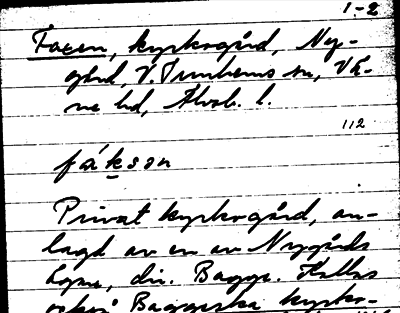 1-2
Faxen, kyrkogård, Ny-
gård, V. Tunhems sn, Vä-
ne hd, Älvsb. l.
112
fákson
Privat kyrkogård, an-
lagd av en av Nygårds
ägare, dir. Bagge. Kallas
också Baggeska kyrko-